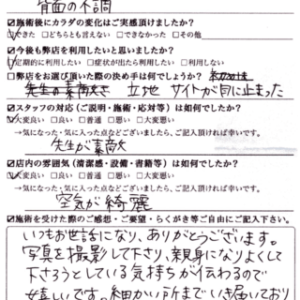 背面の不調
☑施術後にカラダの変化はご実感頂けましたか？
☑できた □どちらとも言えない □できなかった □その他
☑今後も弊店を利用したいと思いましたか？
☑定期的に利用したい □症状が出たら利用したい □利用しない
□弊店をお選び頂いた際の決め手は何でしょうか？
先生の素敵さ 立地 サイトが目に止まった
☑スタッフの対応（ご説明・施術・応対等）は如何でしたか？
☑大変良い □良い □普通 □悪い □大変悪い
→気になった・気に入った点などございましたら、ご記入頂ければ幸いです。
先生が素敵
☑店内の雰囲気（清潔感・設備・書籍等）は如何でしたか？
☑大変良い □良い □普通 □悪い □大変悪い
→気になった・気に入った点などございましたら、ご記入頂ければ幸いです。
空気が綺麗
☑施術を受けた際のご感想・ご要望・らくがき等ご自由にご記入下さい。
いつもお世話になり、ありがとうございます。
写真を撮影して下り、親身になりよくして
下さろうとしている気持ちが伝わるので
嬉しいです。細かい所まで いき届いており